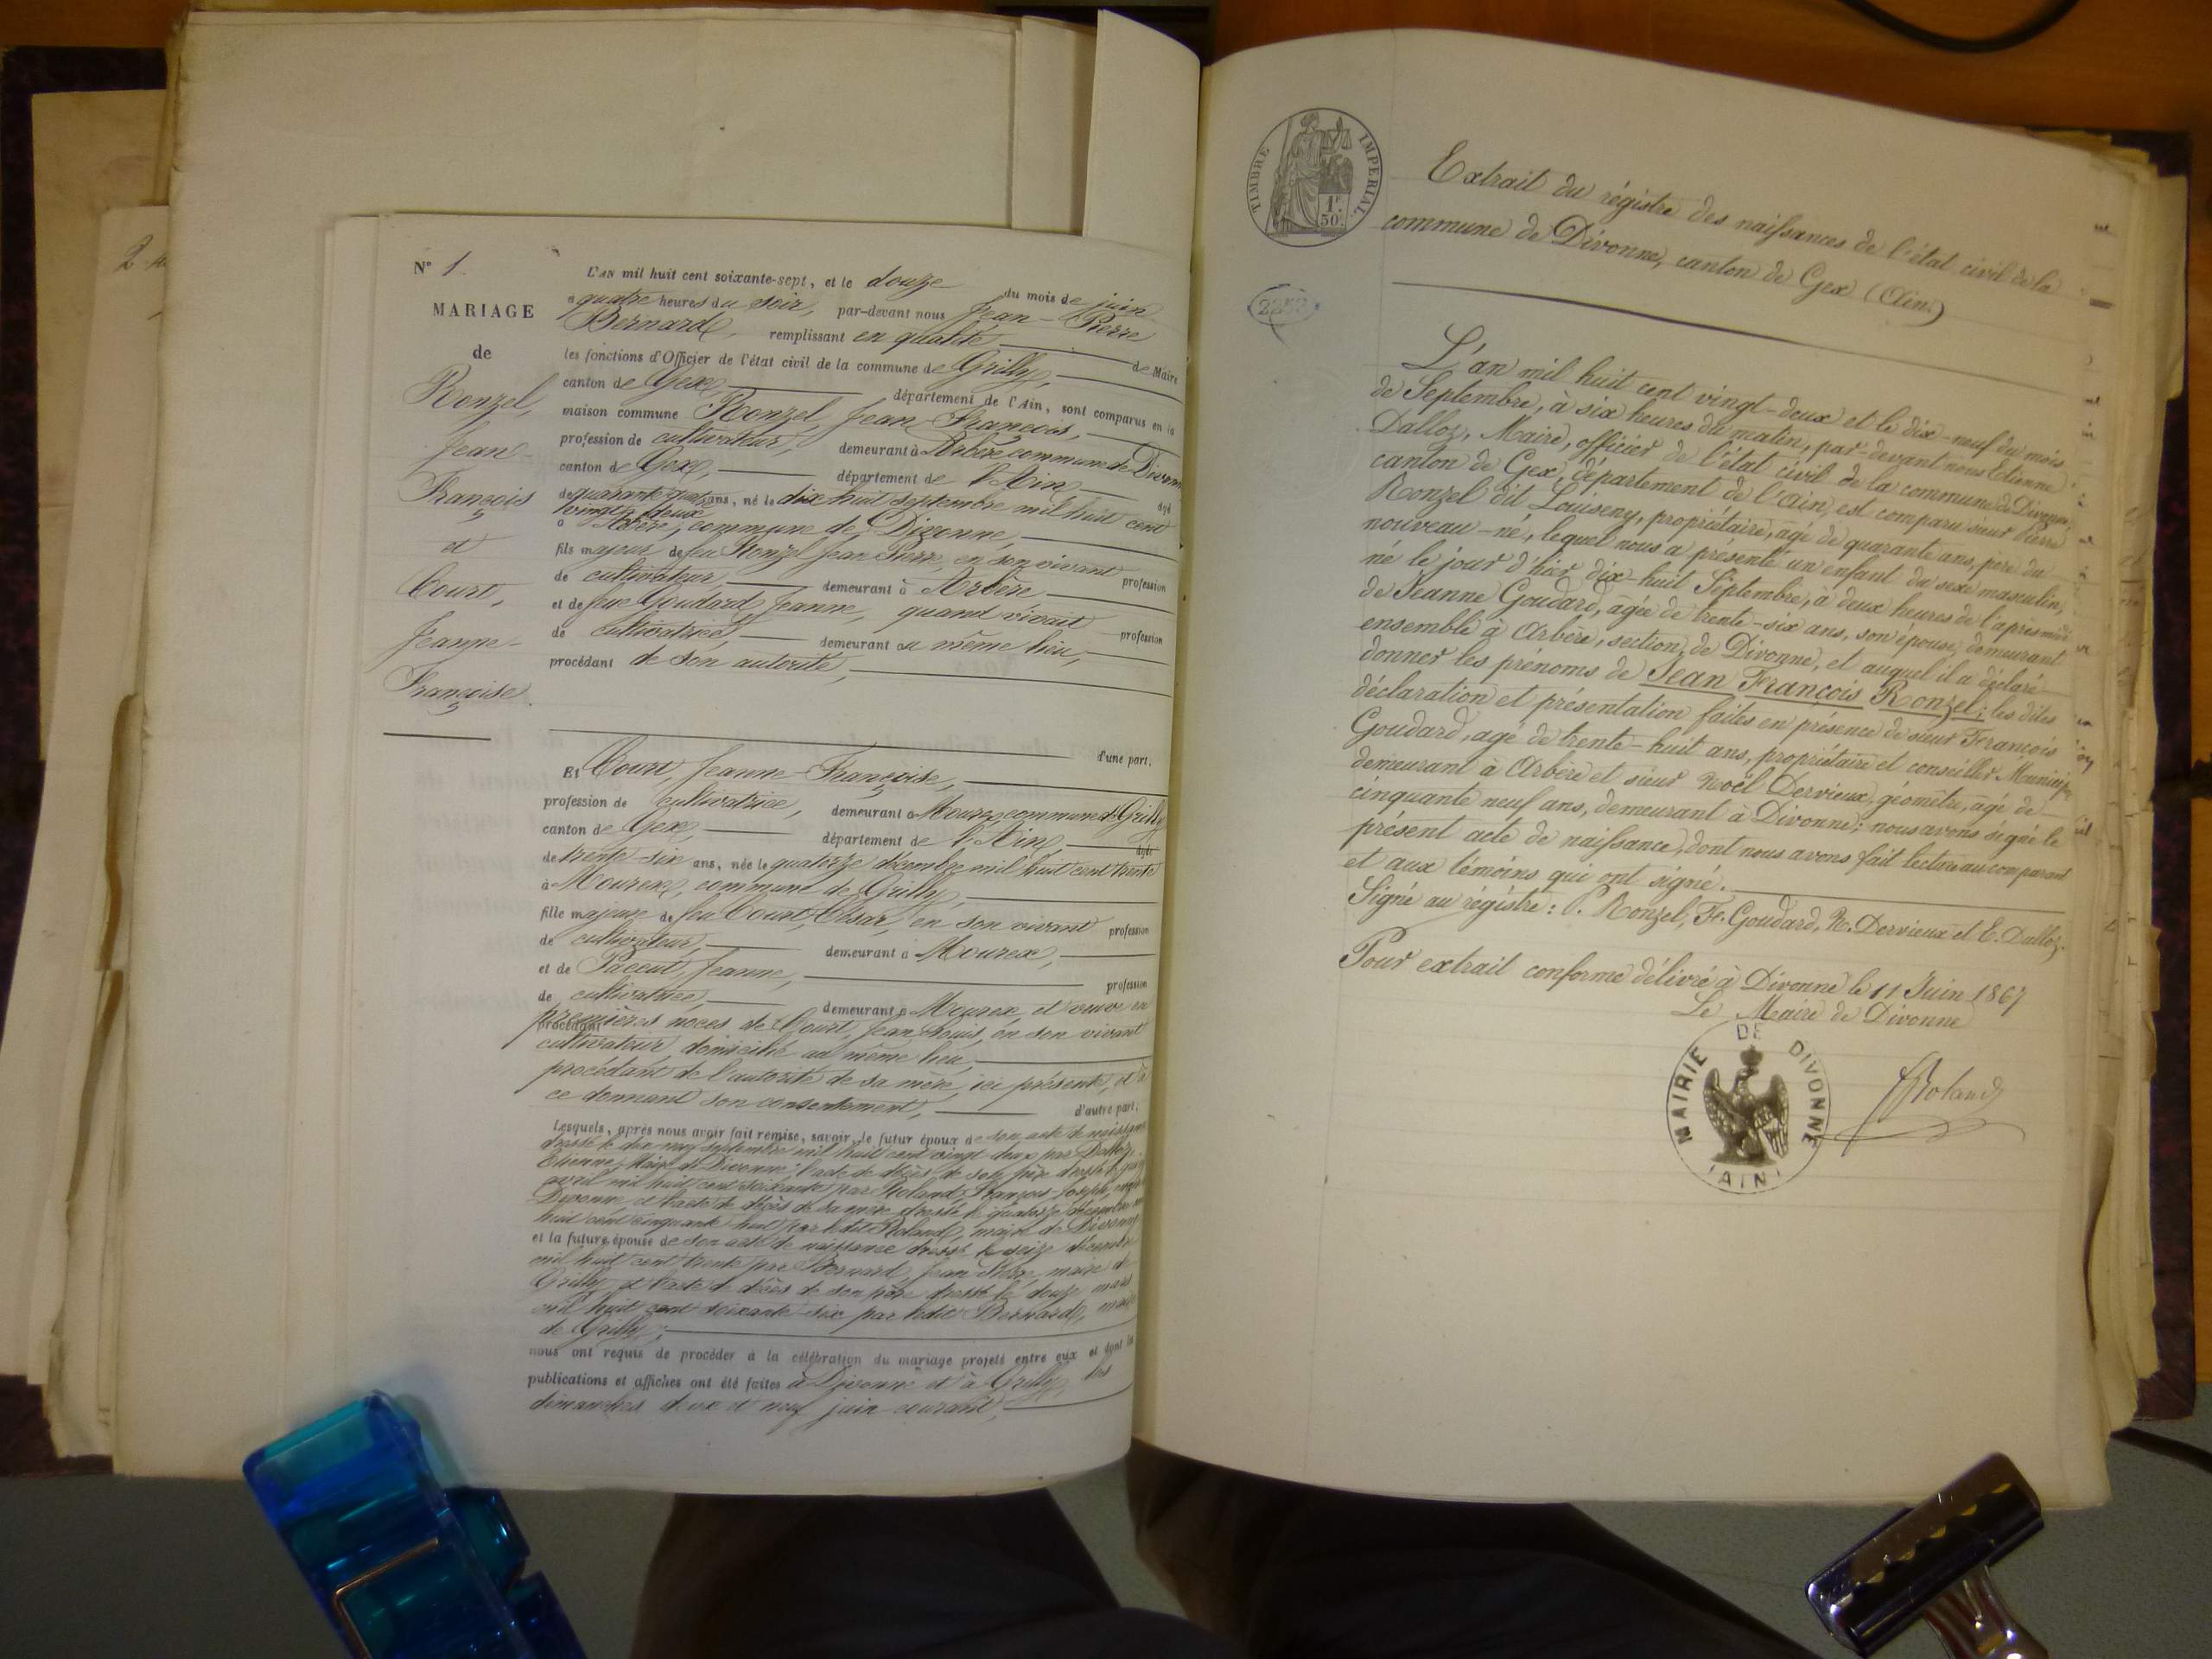 2
N° 1.
MARIAGE
de
Ronzel,
Jean-
François
et
Court,
Jeanne-
Françoise.
L'AN mil huit cent soixante-sept, et le douze du mois de juin
à quatre heures du soir, par-devant nous Jean-Pierre
Bernard, remplissant en qualité de Maire
les fonctions d'Officier de l'état civil de la commune de Grilly,
canton de Gex, département de l'Ain, sont comparus en la
maison commune Ronzel, Jean François,
profession de cultivateur, demeurant à Arbère commune de Divonne
canton de Gex, département de l'Ain
de quarante quatre ans, né le dix huit septembre mil huit cent
vingt deux
à Arbère, commune de Divonne,
fils majeur de feu Ronzel Jean Pierre, en son vivant profession
de cultivateur demeurant à Arbère
et de feue Goudard Jeanne, quand vivait profession
de cultivatrice, demeurant au même lieu,
procédant de son autorité,
d'une part.
Et Court, Jeanne-Françoise,
profession de cultivatrice, demeurant à Mourex commune de Grilly
canton de Gex, département de l'Ain, dqdt
de trente-six ans, née le quatorze décembre mil huit cent trente
à Mourex, commune de Grilly,
fille majeure de feu Court, César, en son vivant profession
de cultivateur, demeurant à Mourex,
et de Paccut, Jeanne, profession
de cultivatrice, demeurant à Mourex, et veuve en
procédant
premières noces de Court, Jean Louis, en son vivant
cultivateur, domicilié au même lieu,
procédant de l'autorité de sa mère, ici présente, et à
ce donnant son consentement, d'autre part.
Lesquels, après nous avoir fait remise, savoir, le futur époux de son acte de naissance
dressé le dix-neuf septembre mil huit cent vingt deux par Dalloz,
Etienne, Maire de Divonne; l'acte de décès de son père dressé le
avril mil huit cent soixante par Roland, François-Joseph, maire
Divonne, et l'acte de décès de sa mère dressé le quatorze décembre mil
huit cent cinquante huit par le dit Roland, maire de Divonne
et la future épouse de son acte de naissance dressé le seize décembre
mil huit cent trente par Bernard, Jean Pierre, maire de
Grilly, et l'acte de décès de son père dressé le douze mars
mil huit cent soixante-six par ledit Bernard, maire
de Grilly;
nous ont requis de procéder à la célébration du mariage projeté entre eux et dont les
publications et affiches ont été faites à Divonne et à Grilly, les
dimanches deux et neuf juin courant,
TIMBRE IMPERIAL.
1F.
50c.
Extrait du régistre des naissances de l'état civil de la
commune de Divonne, canton de Gex (Ain.)
L'an mil huit cent vingt-deux et le dix-neuf du mois
de Septembre, à six heures du matin, par-devant nous Etienne
Dalloz, Maire, officier de l'état civil de la commune de Divonne,
canton de Gex, département de l'Ain, est comparu sieur Pierre
Ronzel dit Louiseny, propriétaire, âgé de quarante ans, père du
nouveau-né, lequel nous a présenté un enfant du sexe masculin,
né le jour d'hier dix-huit Septembre, à deux heures de l'après-midi
de Jeanne Goudard, âgée de trente-six ans, son épouse, demeurant
ensemble à Arbère, section de Divonne, et auquel il a déclaré
donner les prénoms de Jean François Ronzel; les dites
déclaration et présentation faites en présence de sieur François
Goudard, âgé de trente-huit ans, propriétaire et conseiller Municipal
demeurant à Arbère et sieur Noël Dervieux, géomètre, âgé de
cinquante neuf ans, demeurant à Divonne; nous avons signé le
présent acte de naissance, dont nous avons fait lecture au comparant
et aux témoins qui ont signé.
Signé au régistre: P. Ronzel, Fs. Goudard, N. Dervieux et E. Dalloz.
Pour extrait conforme délivré à Divonne le 11 Juin 1867
Le Maire de Divonne
MAIRIE DE DIVONNE
(AIN)
Roland